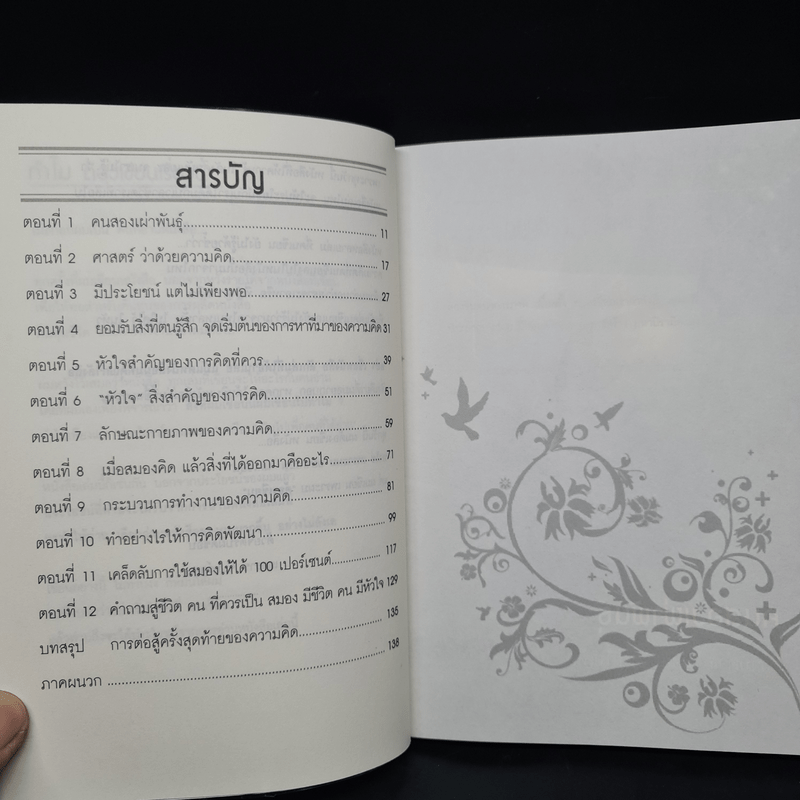 สารบัญ
ตอนที่ 1 คนสองเผ่าพันธุ์........................................ 11
ตอนที่ 2 ศาสตร์ ว่าด้วยความคิด.............................. 17
ตอนที่ 3 มีประโยชน์ แต่ไม่เพียงพอ......................... 27
ตอนที่ 4 ยอมรับสิ่งที่ตนรู้สึก จุดเริ่มต้นของการหาที่มาของความคิด 31
ตอนที่ 5 หัวใจสำคัญของการคิดที่ควร...................... 39
ตอนที่ 6 "หัวใจ" สิ่งสำคัญของการคิด..................... 51
ตอนที่ 7 ลักษณะกายภาพของความคิด..................... 59
ตอนที่ 8 เมื่อสมองคิด แล้วสิ่งที่ได้ออกมาคืออะไร......... 71
ตอนที่ 9 กระบวนการทำงานของความคิด................. 81
ตอนที่ 10 ทำอย่างไรให้การคิดพัฒนา...................... 99
ตอนที่ 11 เคล็ดลับการใช้สมองให้ได้ 100 เปอร์เซนต์....... 117
ตอนที่ 12 คำถามสู่ชีวิต คน ที่ควรเป็น สมอง มีชีวิต คน มีหัวใจ 129
บทสรุป การต่อสู้ครั้งสุดท้ายของความคิด................ 135
ภาคผนวก .................................................... 138